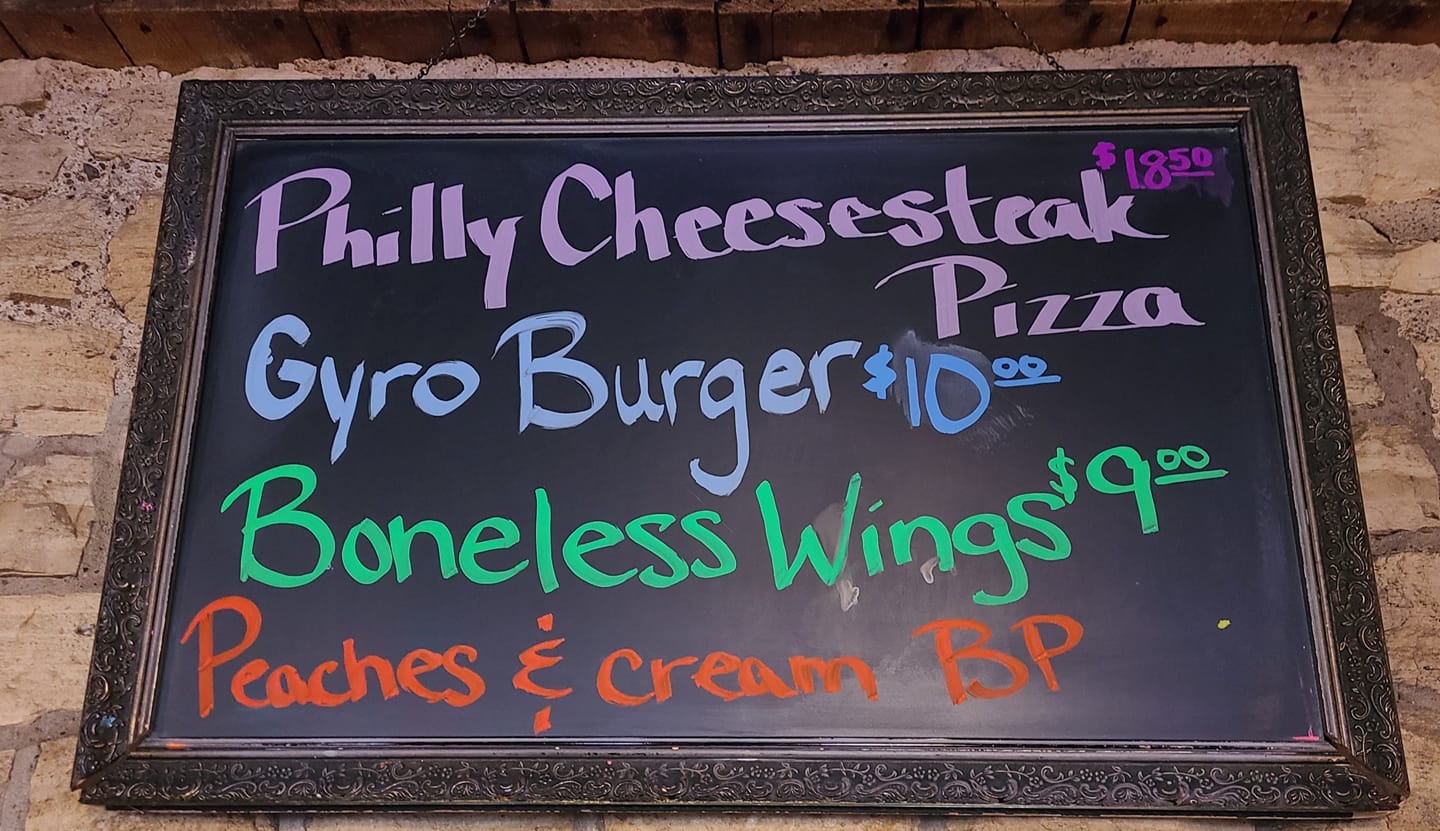 Philly Cheesesteak $18.50
Pizza
Gyro Burger $10.00
Boneless Wings $9.00
Peaches & cream BP